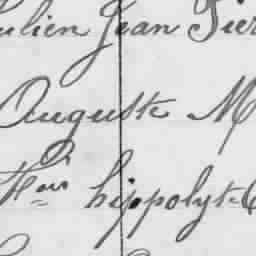 ulien Jean Pier
Auguste M
hippolyte